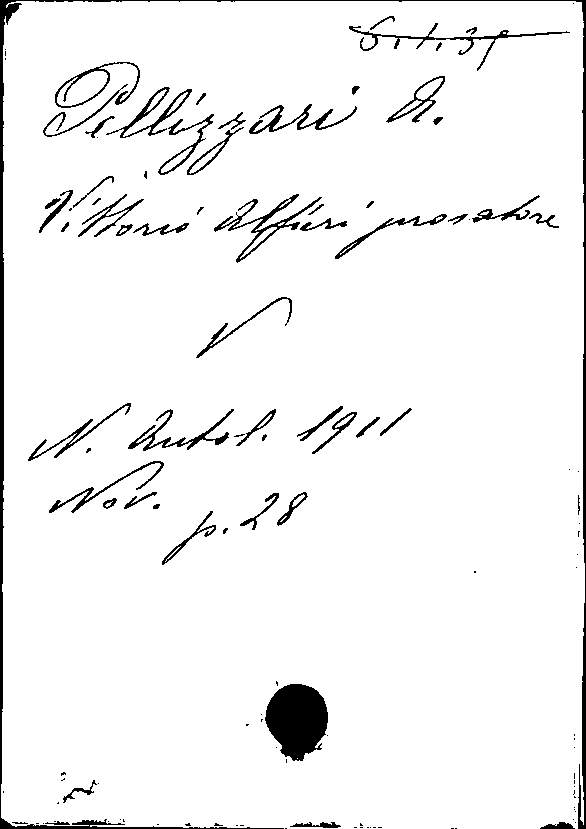 6.1.31
Pellizzari A.
Vittorio Alfieri prosatore
V
N. Antol. 1911
Nov.
p. 28